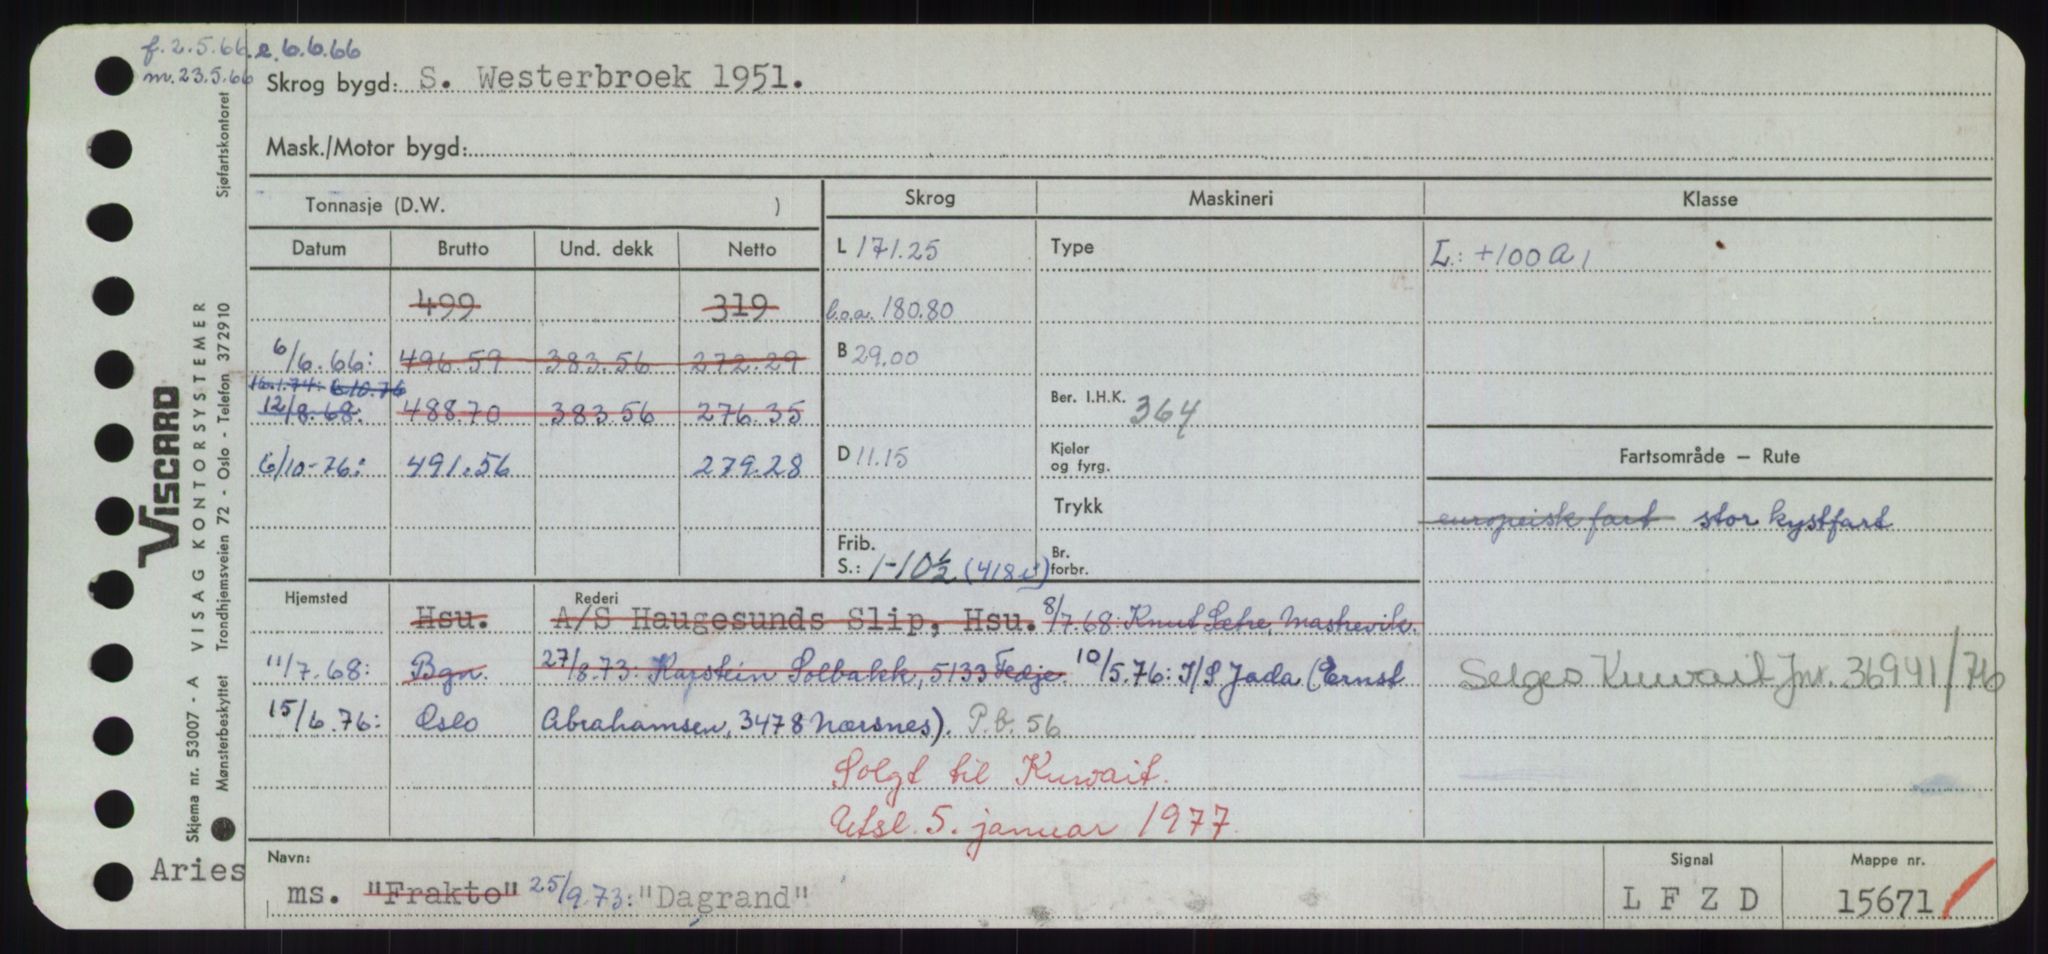 f. 2.5.66. e. 6.6.66
m. 23.5.66
Skrog bygd: S. Westerbroek 1951.
Mask./Motor bygd:
Tonnasje (D.W. )
Skrog Maskineri Klasse
Datum Brutto Und. dekk Netto
L 171.25 Type L: +100 A 1
499 319
l.o.a. 180.80
6/6.66: 496.59 383.56 272.29
B 29.00
16.1.74: 6.10.76
12/8.68: 488.70 383.56 276.35
Ber. I.H.K. 364
6/10-76: 491.56 279.28
D 11.15 Kjeler og fyrg.
Fartsområde — Rute
Trykk
europeisk fart stor kystfart
Frib.
S.: 1-10½ (418) Br. forbr.
Hjemsted Rederi
Hsu. A/S Haugesunds Slip, Hsu. 8/7.68: Knut Sætre, Mashevik.
11/7.68: Bgn. 27/8.73: Karstein Solbakk, 5133 Fedje. 10/5.76: I/S Jada (Ernst
Selges Kuwait Jnr. 36941/76
15/6.76: Oslo Abrahamsen, 3478 Nærsnes). P.b. 56
Solgt til Kuwait.
Utsl. 5. januar 1977.
Navn: Signal Mappe nr.
Aries
ms. "Frakto" 25/9.73: "Dagrand"
L F Z D 15671
Skjema nr. 53007 - A VISAG KONTORSYSTEMER
VISCARD
Mønsterbeskyttet Trondhjemsveien 72 - Oslo - Telefon 372910 Sjøfartskontoret